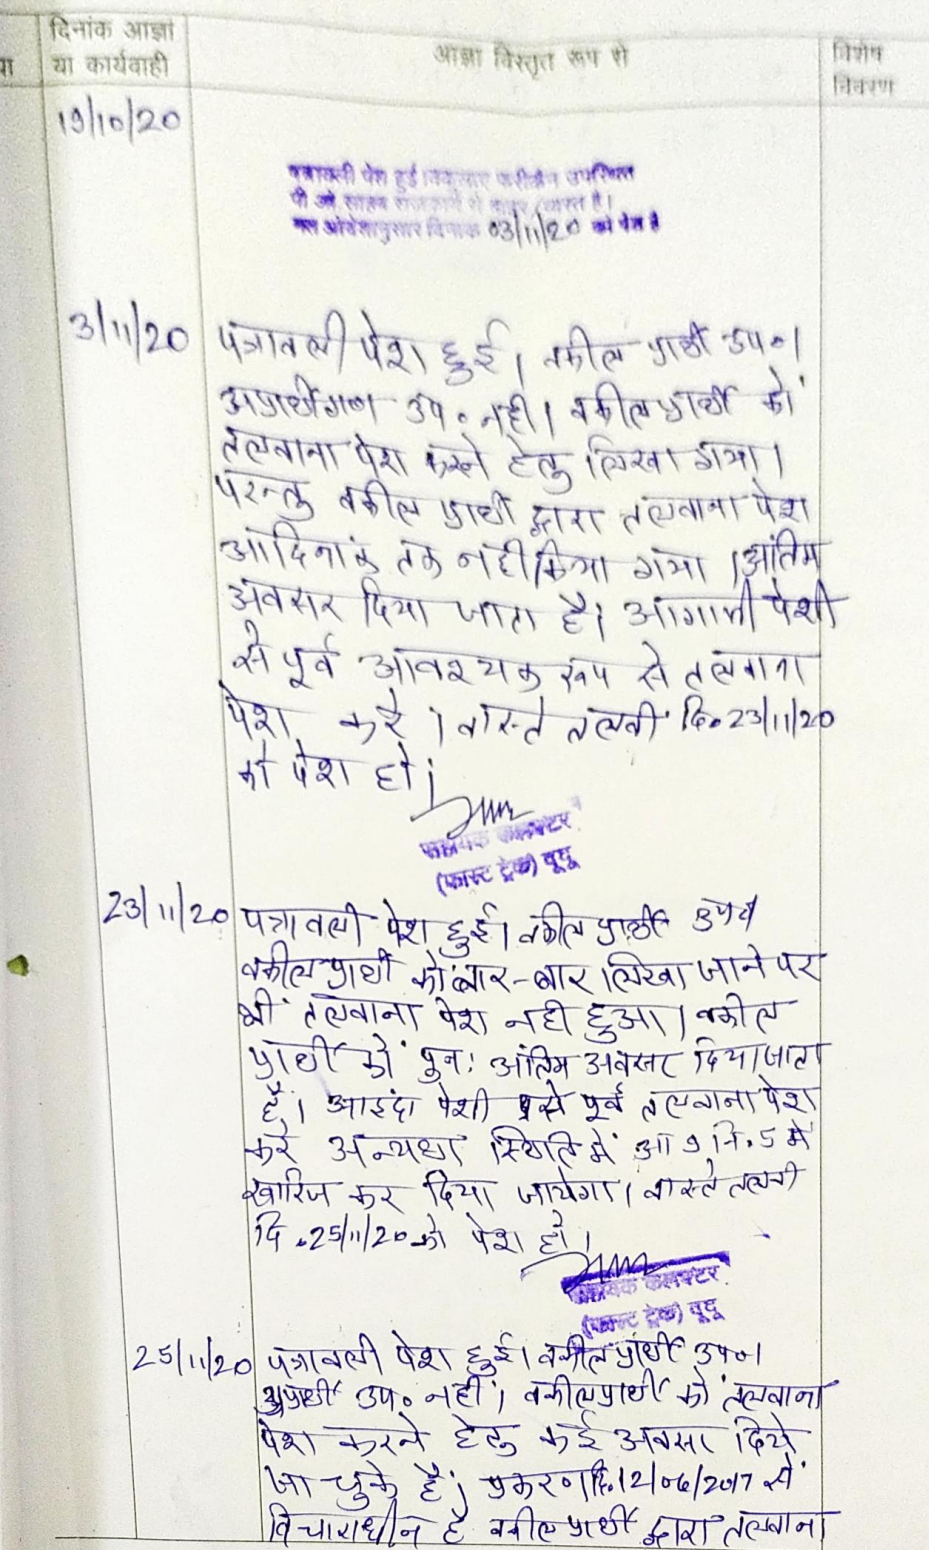 दिनांक आज्ञा
या कार्यवाही
आज्ञा विस्तृत रूप से
विशेष
विवरण
19/10/20
पत्रावली पेश हुई। वकुलाए फरीकैन उपस्थित
पी ओ साहब राजकार्य से
अतः आदेशानुसार दिनांक 03/11/20 को पेश है
3/11/20
पत्रावली पेश हुई। वकील प्रार्थी उप०।
अप्रार्थीगण उप० नही। वकील प्रार्थी को
तलवाना पेश करने हेतु लिखा गया।
परन्तु वकील प्रार्थी द्वारा तलवाना पेश
आदिनांक तक नही किया गया। अंतिम
अवसर दिया जाता है। आगामी पेशी
से पूर्व आवश्यक रूप से तलवाना
पेश करे। वास्ते तलबी दि० 23/11/20
को पेश हो।
सहायक कलक्टर
(फास्ट ट्रेक) दूदू
23/11/20
पत्रावली पेश हुई। वकील प्रार्थी
वकील प्रार्थी को बार-बार लिखा जाने पर
भी तलवाना पेश नही हुआ। वकील
प्रार्थी को पुनः अंतिम अवसर दिया जाता
है। आइंदा पेशी से पूर्व तलवाना पेश
करे अन्यथा स्थिति में आ 9 नि. 5 में
खारिज कर दिया जायेगा। वास्ते तलबी
दि. 25/11/20 को पेश हो।
सहायक कलक्टर
(फास्ट ट्रेक) दूदू
25/11/20
पत्रावली पेश हुई। वकील प्रार्थी उप०।
अप्रार्थी उप० नही। वकील प्रार्थी को तलवाना
पेश करने हेतु कई अवसर दिये
जा चुके है। प्रकरण दि. 12/06/2017 से
विचाराधीन है वकील प्रार्थी द्वारा तलवाना